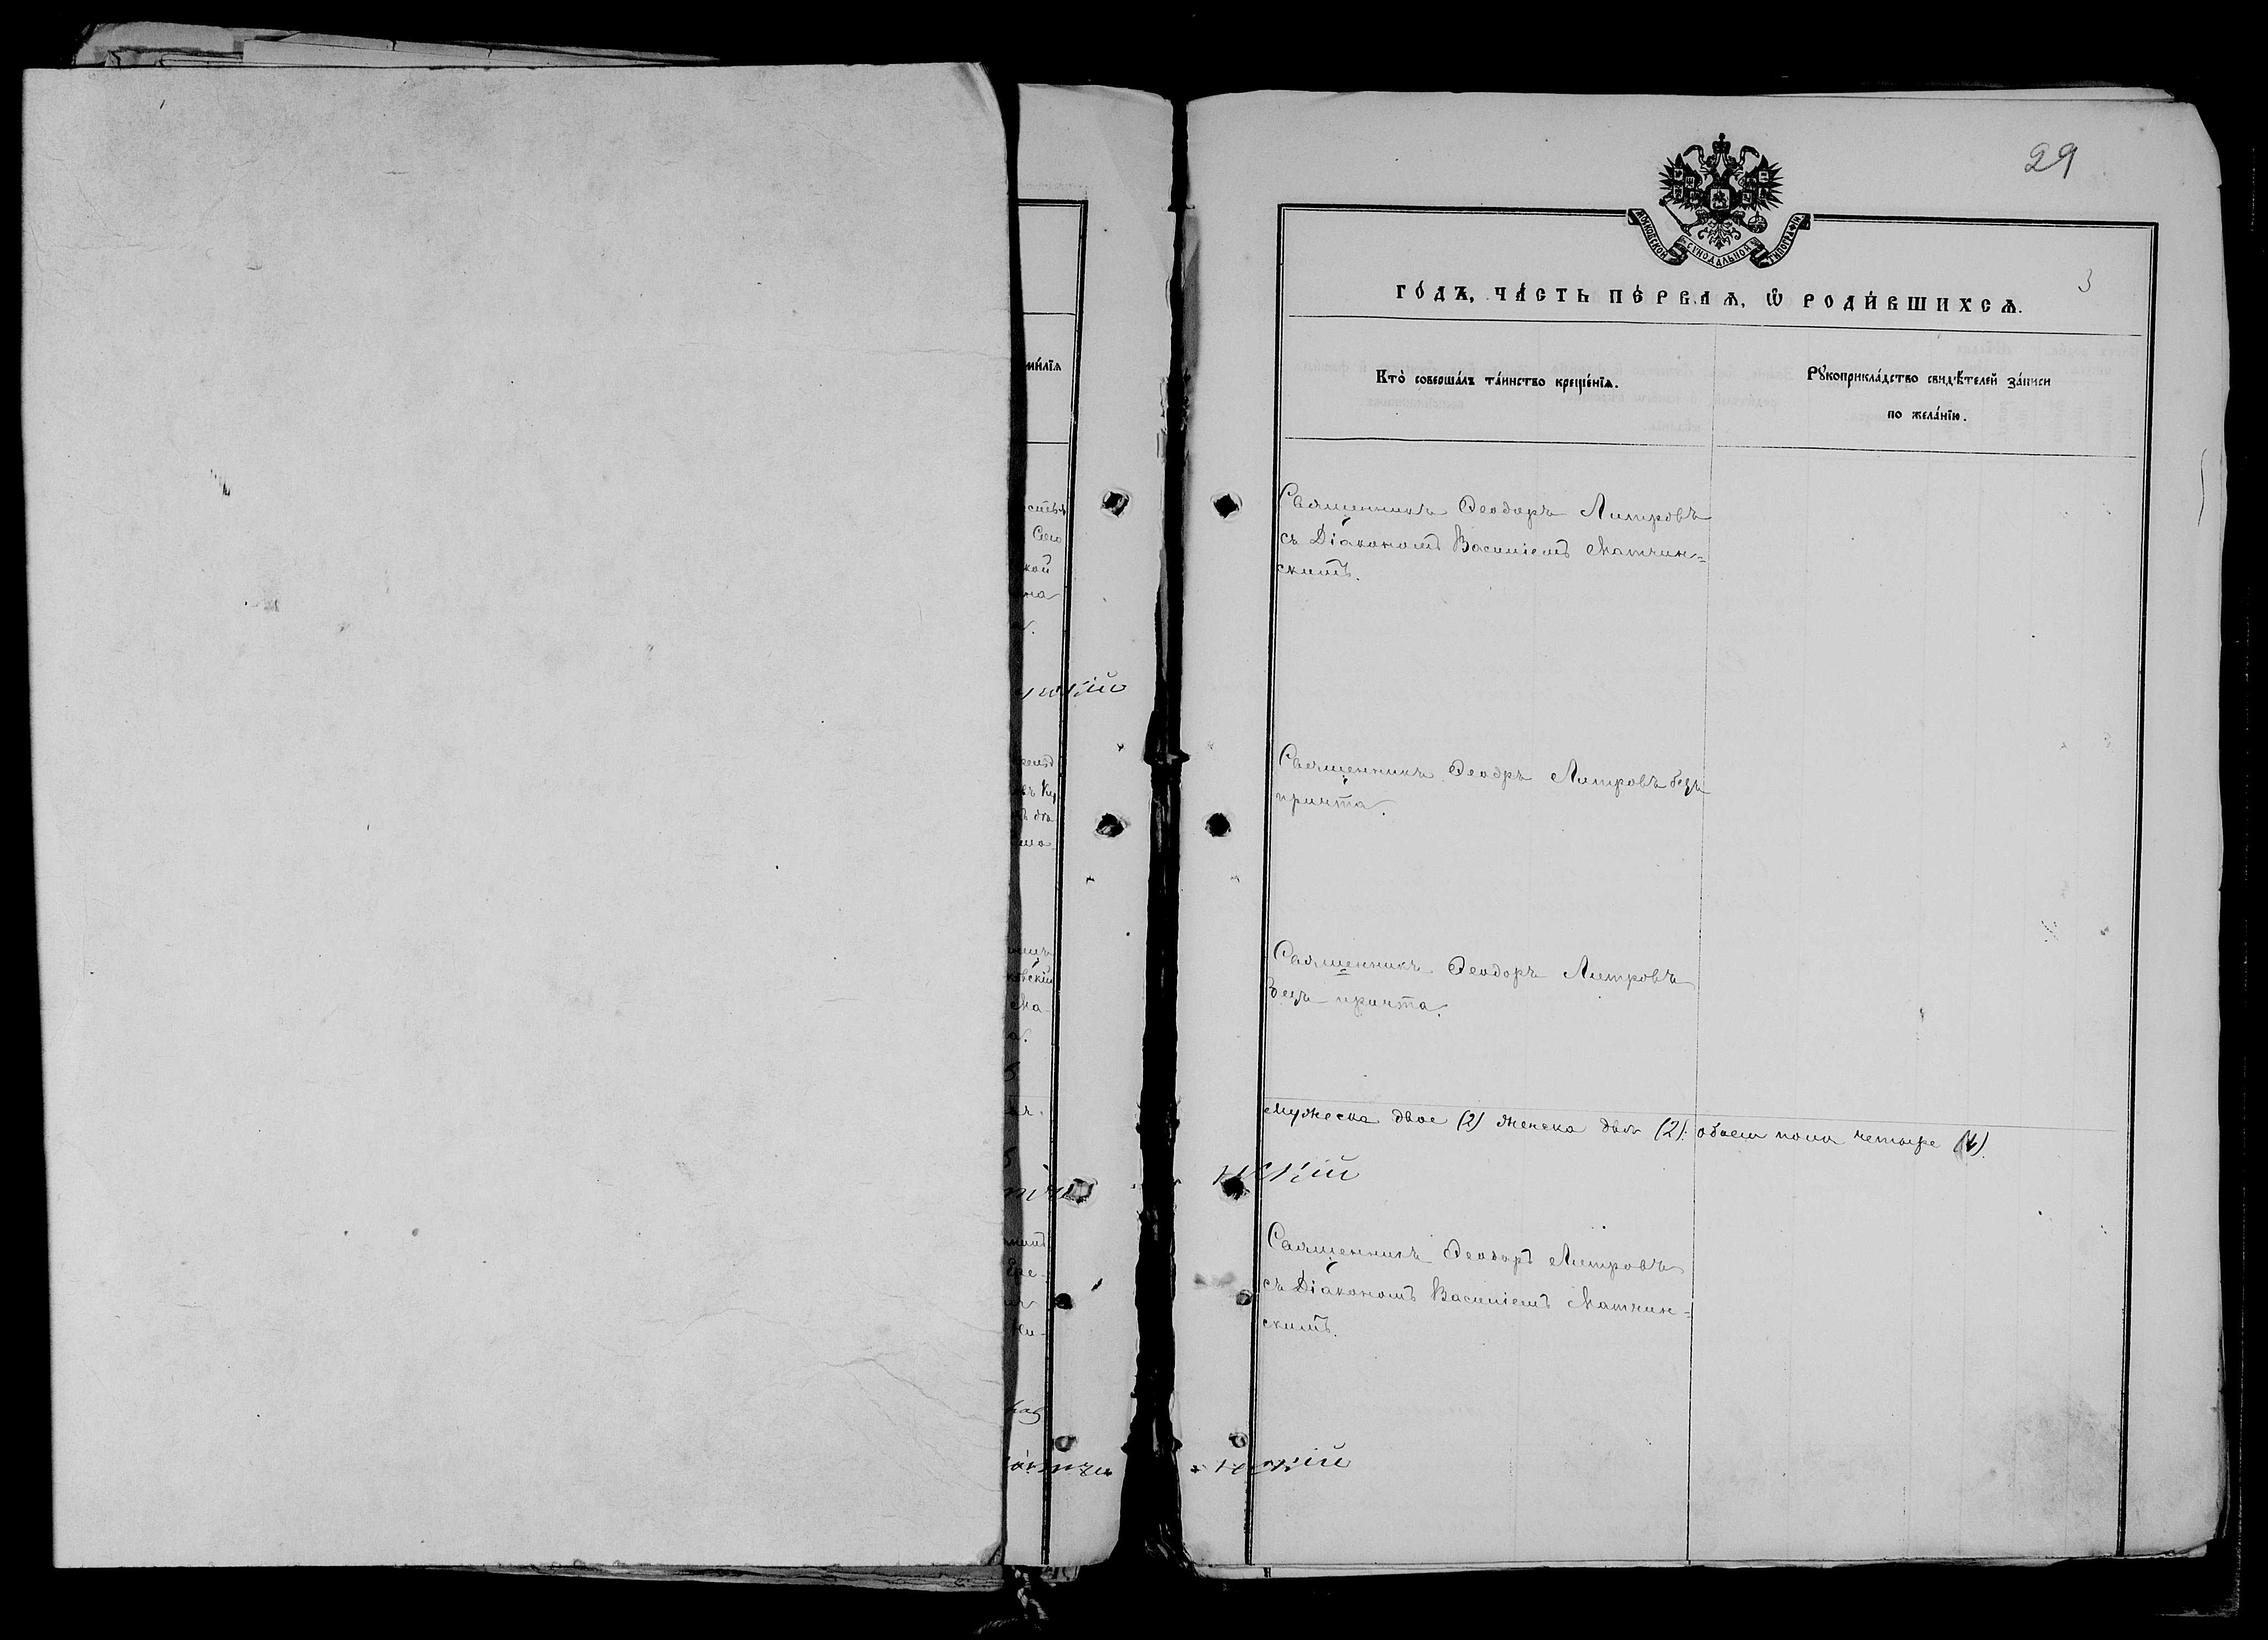 29
МОСКОВСКОЙ СѴНОДАЛЬНОЙ ТИПОГРАФІИ
3
ГО́ДЪ, ЧА́СТЬ ПЕ́РВАѦ, Ѡ҆ РОДИ́ВШИХСѦ.
ми́лїѧ
Кто̀ соверша́лъ та́инство креще́нїѧ.
Рꙋкоприкла́дство свидѣ́телей за́писи
по жела́нїю.
Священникъ Ѳеодоръ Литровъ
съ Діакономъ Василіемъ Матчин=
скимъ.
кой
на
Священникъ Ѳеодръ Литровъ безъ
причта.
Священникъ Ѳеодоръ Литровъ
безъ причта.
ковскій
Ма-
Мужеска двое (2) женска двѣ (2): обоего пола четыре (4).
нскій
Священникъ Ѳеодоръ Литровъ
съ Діакономъ Василіемъ Матчин-
скимъ.
нскій